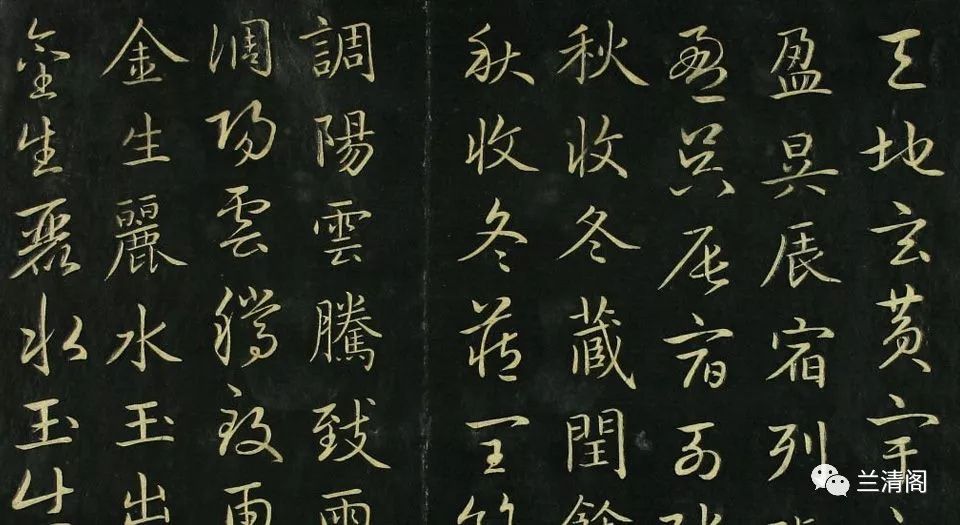 天地玄黃宇
盈昃辰宿列
盈昃辰宿列張
秋收冬藏閏餘
秋收冬藏閏餘
調陽雲騰致雨
調陽雲騰致雨
金生麗水玉出
金生麗水玉出
兰清阁